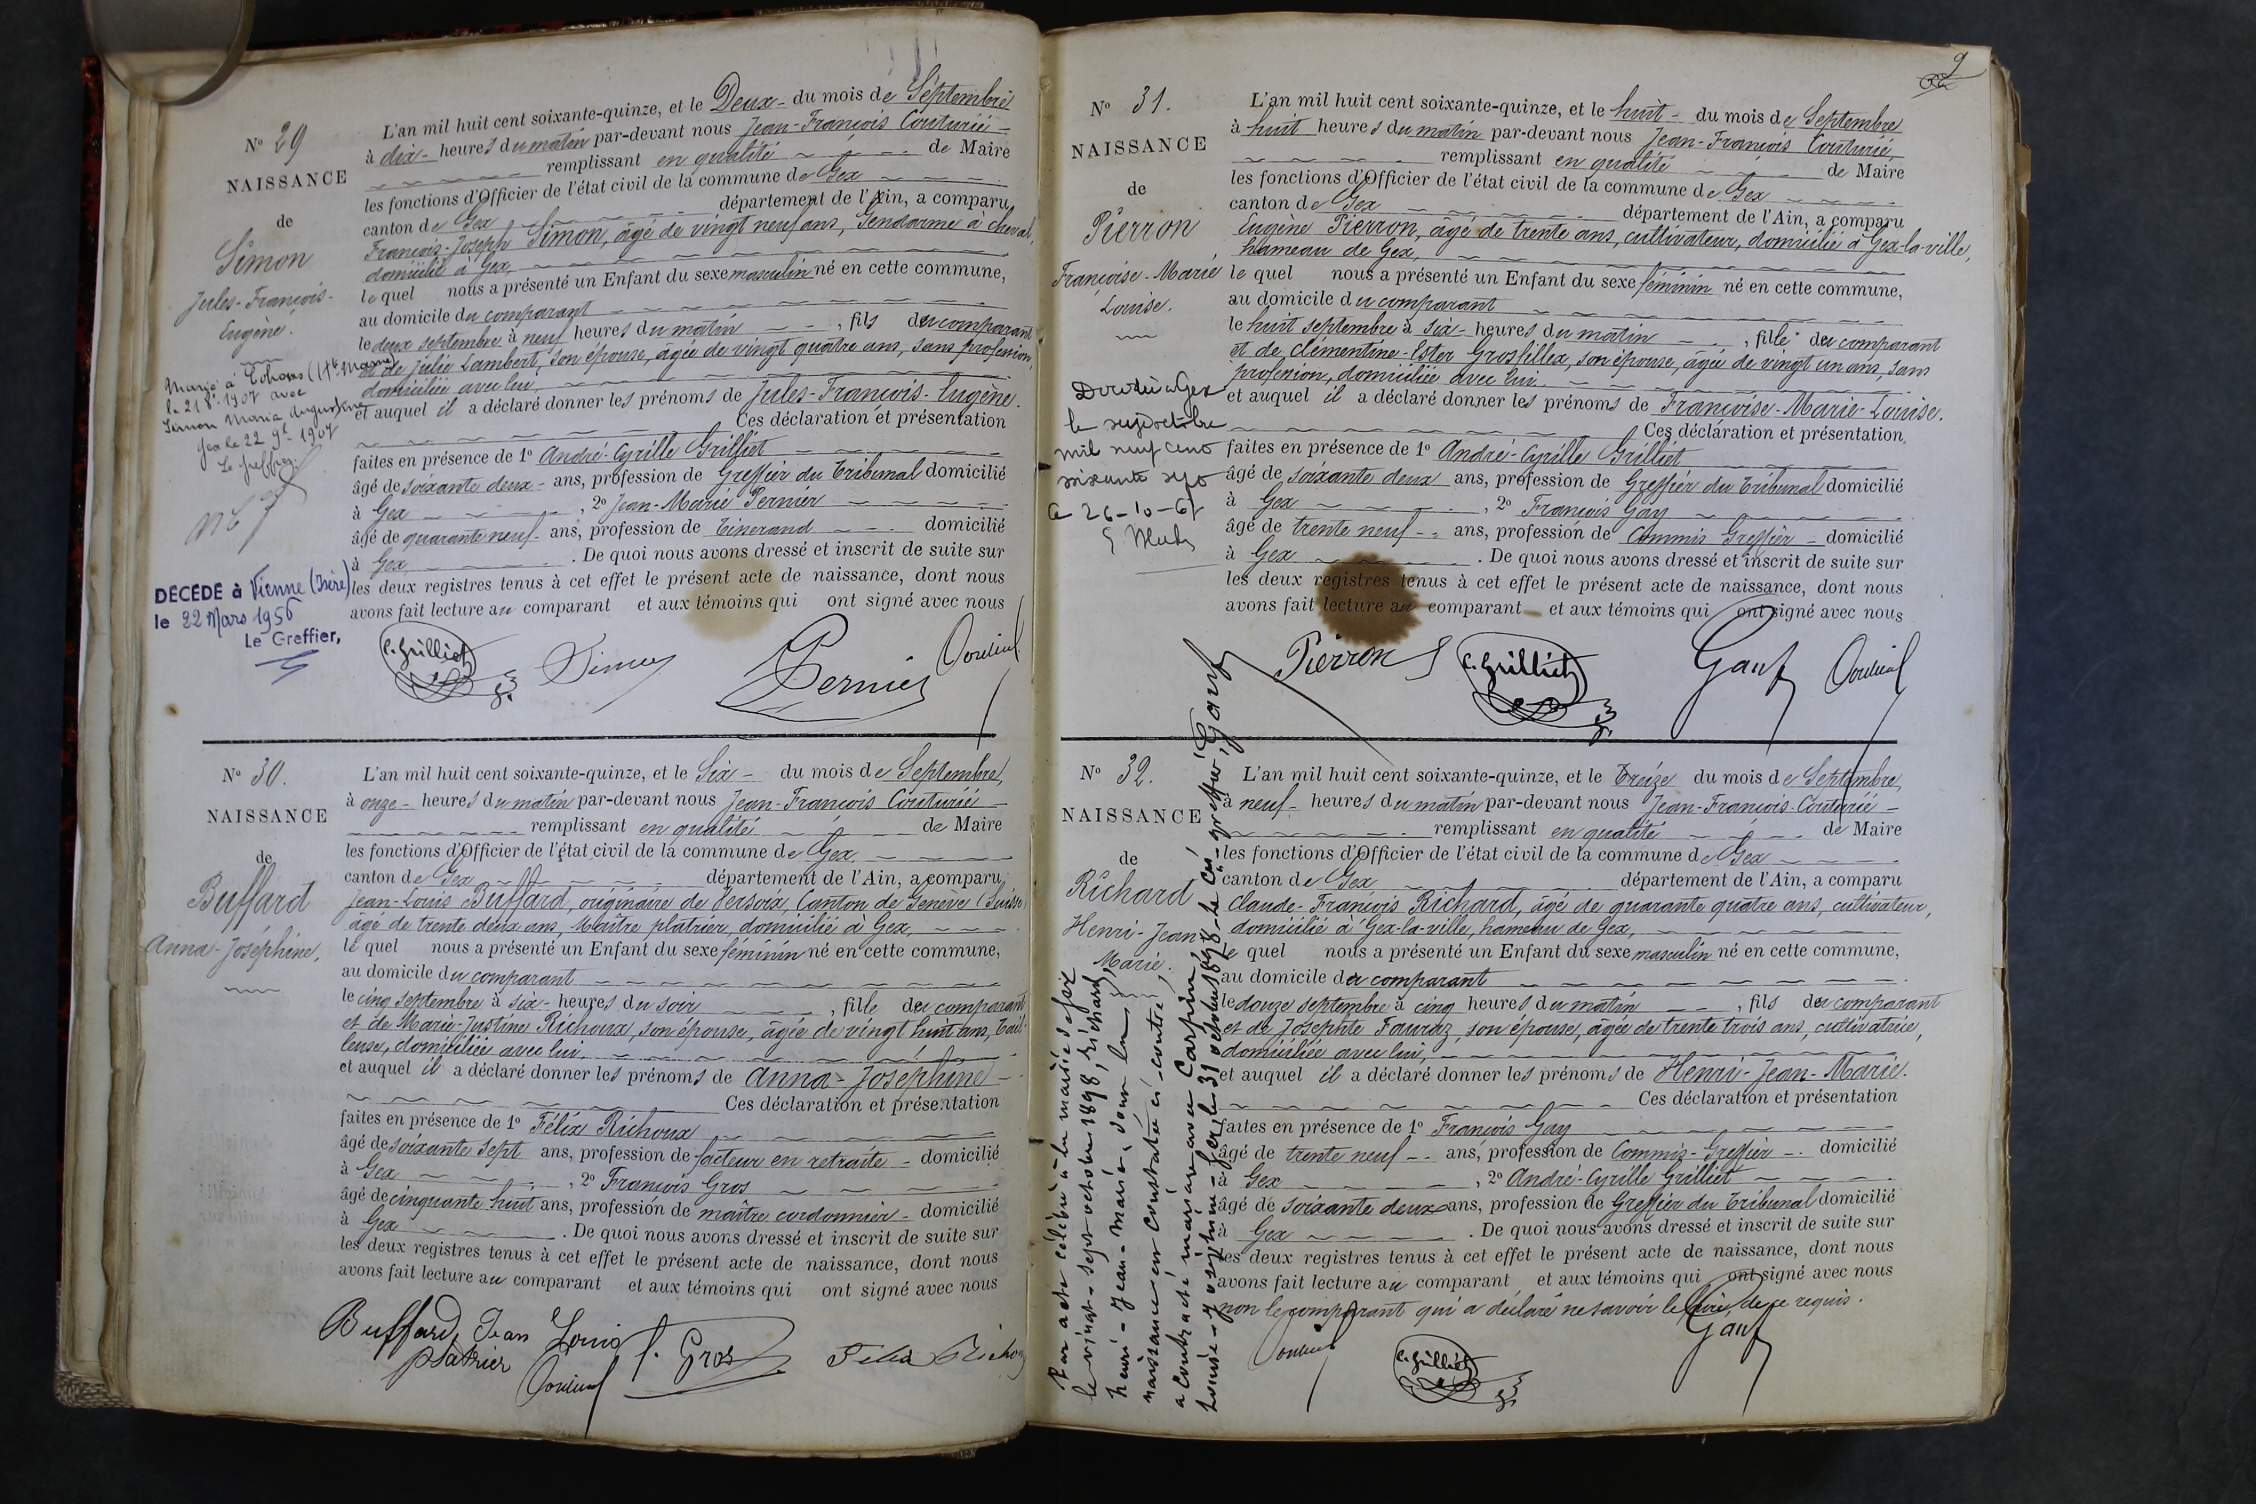 N° 29
NAISSANCE
de
Simon
Jules-François-
Eugène.
Marié à
le 21 8bre 1907 avec
Simon Maria Augustine
Gex le 22 9bre 1907
Le Greffier
DÉCÉDÉ à Vienne (Isère)
le 22 Mars 1956
Le Greffier,
L'an mil huit cent soixante-quinze, et le Deux - du mois de Septembre
à dix - heures du matin par-devant nous Jean-François Couturié -
remplissant en qualité de Maire
les fonctions d'Officier de l'état civil de la commune de Gex
canton de Gex département de l'Ain, a comparu
François-Joseph Simon, âgé de vingt neuf ans, Gendarme à cheval,
domicilié à Gex,
le quel nous a présenté un Enfant du sexe masculin né en cette commune,
au domicile du comparant
le deux septembre à neuf heures du matin , fils du comparant
et de Julie Lambert, son épouse, âgée de vingt quatre ans, sans profession,
domiciliée avec lui,
et auquel il a déclaré donner les prénoms de Jules-François-Eugène.
Ces déclaration et présentation
faites en présence de 1° André-Cyrille Grilliet
âgé de soixante deux - ans, profession de Greffier du Tribunal domicilié
à Gex , 2° Jean-Marie Pernier
âgé de quarante neuf - ans, profession de Tisserand domicilié
à Gex . De quoi nous avons dressé et inscrit de suite sur
les deux registres tenus à cet effet le présent acte de naissance, dont nous
avons fait lecture au comparant et aux témoins qui ont signé avec nous
C. Grilliet Simon Pernier Couturié
N° 30.
NAISSANCE
de
Buffard
Anna-Joséphine,
L'an mil huit cent soixante-quinze, et le Six - du mois de Septembre,
à onze - heures du matin par-devant nous Jean-François Couturié
remplissant en qualité de Maire
les fonctions d'Officier de l'état civil de la commune de Gex
canton de Gex département de l'Ain, a comparu
Jean-Louis Buffard, originaire de Versoix, Canton de Genève (Suisse)
âgé de trente deux ans, Maître platrier, domicilié à Gex,
le quel nous a présenté un Enfant du sexe féminin né en cette commune,
au domicile du comparant
le cinq septembre à six - heures du soir , fille du comparant
et de Marie-Justine Richoux, son épouse, âgée de vingt huit ans, Tail-
leuse, domiciliée avec lui,
et auquel il a déclaré donner les prénoms de Anna-Joséphine -
Ces déclaration et présentation
faites en présence de 1° Félix Richoux
âgé de soixante sept ans, profession de facteur en retraite - domicilié
à Gex , 2° François Gros
âgé de cinquante huit ans, profession de maître cordonnier - domicilié
à Gex . De quoi nous avons dressé et inscrit de suite sur
les deux registres tenus à cet effet le présent acte de naissance, dont nous
avons fait lecture au comparant et aux témoins qui ont signé avec nous
Buffard, Jean Louis f. Gros Félix Richoux
platrier Couturié
9
N° 31.
NAISSANCE
de
Pierron,
Françoise-Marie
Louise.
Décédée à Gex
le sept octobre
mil neuf cent
soixante sept
le 26-10-67
L'an mil huit cent soixante-quinze, et le huit - du mois de Septembre
à huit heures du matin par-devant nous Jean-François Couturié,
remplissant en qualité de Maire
les fonctions d'Officier de l'état civil de la commune de Gex
canton de Gex département de l'Ain, a comparu
Eugène Pierron, âgé de trente ans, cultivateur, domicilié à Gex-la-ville,
hameau de Gex,
le quel nous a présenté un Enfant du sexe féminin né en cette commune,
au domicile du comparant
le huit septembre à six - heures du matin , fille du comparant
et de Clémentine-Ester Grosfillex, son épouse, âgée de vingt un ans, sans
profession, domiciliée avec lui.
et auquel il a déclaré donner les prénoms de Françoise-Marie-Louise.
Ces déclaration et présentation
faites en présence de 1° André-Cyrille Grilliet
âgé de soixante deux ans, profession de Greffier du Tribunal domicilié
à Gex , 2° François Gay
âgé de trente neuf - ans, profession de Commis Greffier - domicilié
à Gex . De quoi nous avons dressé et inscrit de suite sur
les deux registres tenus à cet effet le présent acte de naissance, dont nous
avons fait lecture au comparant et aux témoins qui ont signé avec nous
Pierron C. Grilliet Gay Couturié
N° 32.
NAISSANCE
de
Richard
Henri-Jean
Marie.
Par acte célébré à la mairie de Gex
le vingt-sept octobre 1898, Richard,
henri-Jean-Marie, dont la
naissance est constatée ci-contre,
a contracté mariage avec Carpin,
Louise-Joséphine - Gex, le 31 octobre 1898, Le Cis-greffier, Gay
L'an mil huit cent soixante-quinze, et le Treize du mois de Septembre,
à neuf - heures du matin par-devant nous Jean-François-Couturié -
remplissant en qualité de Maire
les fonctions d'Officier de l'état civil de la commune de Gex
canton de Gex département de l'Ain, a comparu
Claude-François Richard, âgé de quarante quatre ans, cultivateur,
domicilié à Gex-la-ville, hameau de Gex,
le quel nous a présenté un Enfant du sexe masculin né en cette commune,
au domicile du comparant
le douze septembre à cinq heures du matin , fils du comparant
et de Josephte Fauraz, son épouse, âgée de trente trois ans, cultivatrice,
domiciliée avec lui,
et auquel il a déclaré donner les prénoms de Henri-Jean-Marie.
Ces déclaration et présentation
faites en présence de 1° François Gay
âgé de trente neuf - ans, profession de Commis-Greffier - domicilié
à Gex , 2° André-Cyrille Grilliet
âgé de soixante deux ans, profession de Greffier du Tribunal domicilié
à Gex . De quoi nous avons dressé et inscrit de suite sur
les deux registres tenus à cet effet le présent acte de naissance, dont nous
avons fait lecture au comparant et aux témoins qui ont signé avec nous
non le comparant qui a déclaré ne savoir le faire, de ce requis.
Couturié C. Grilliet Gay